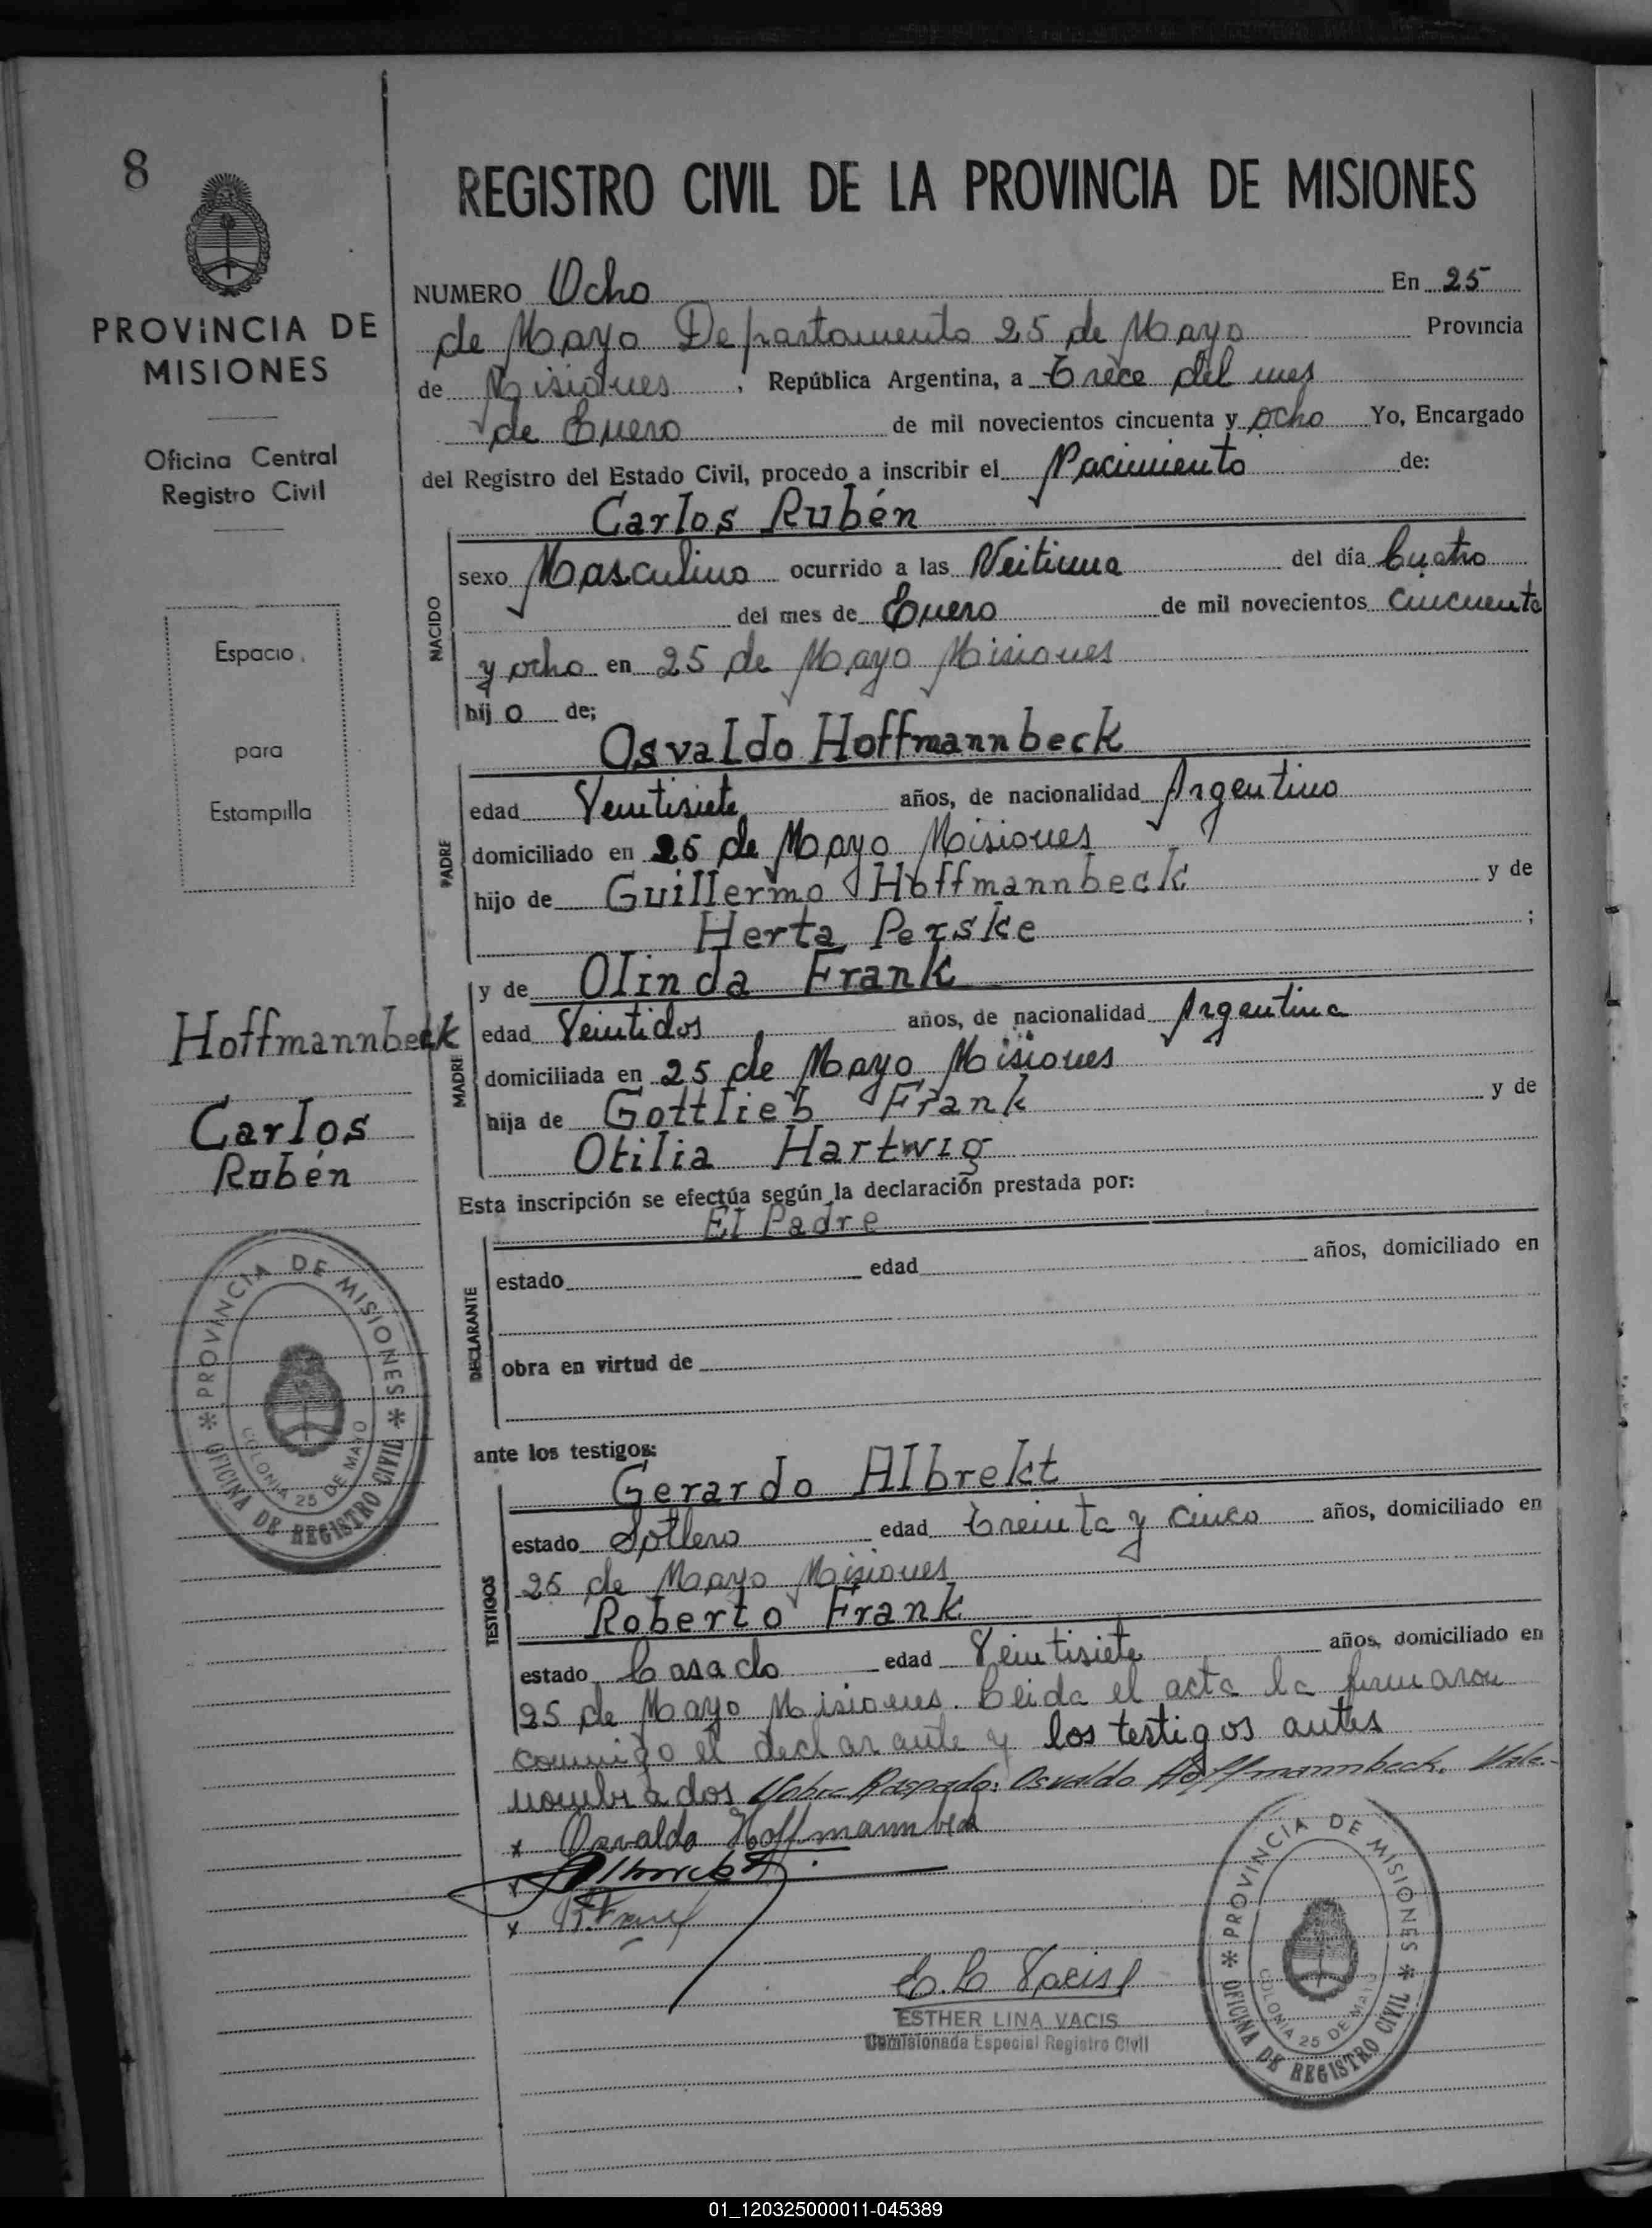 8
REGISTRO CIVIL DE LA PROVINCIA DE MISIONES
PROVINCIA DE
MISIONES
Oficina Central
Registro Civil
Espacio
para
Estampilla
NUMERO Ocho En 25
de Mayo Departamento 25 de Mayo Provincia
de Misiones, República Argentina, a Trece del mes
de Enero de mil novecientos cincuenta y ocho Yo, Encargado
del Registro del Estado Civil, procedo a inscribir el Nacimiento de:
Carlos Rubén
NACIDO
sexo Masculino ocurrido a las Veitiuna del día Cuatro
del mes de Enero de mil novecientos cincuenta
y ocho en 25 de Mayo Misiones
hijo de;
Osvaldo Hoffmannbeck
PADRE
edad Veintisiete años, de nacionalidad Argentino
domiciliado en 25 de Mayo Misiones
hijo de Guillermo Hoffmannbeck y de
Herta Perske ;
y de Olinda Frank
Hoffmannbeck
Carlos
Rubén
MADRE
edad Veintidos años, de nacionalidad Argentina
domiciliada en 25 de Mayo Misiones
hija de Gottlieb Frank y de
Otilia Hartwig
Esta inscripción se efectúa según la declaración prestada por:
El Padre
DECLARANTE
estado edad años, domiciliado en
obra en virtud de
PROVINCIA DE MISIONES
OFICINA DE REGISTRO CIVIL
COLONIA 25 DE MAYO
ante los testigos:
Gerardo Albrekt
TESTIGOS
estado Soltero edad Treinta y cinco años, domiciliado en
25 de Mayo Misiones
Roberto Frank
estado Casado edad Veintisiete años, domiciliado en
25 de Mayo Misiones. Leida el acta la firmaron
conmigo el declarante y los testigos antes
nombrados Sobre Raspado: Osvaldo Hoffmannbeck. Vale.-
x Osvaldo Hoffmannbeck
x
x R. Frank
E. L. Vacis
ESTHER LINA VACIS
Comisionada Especial Registro Civil
PROVINCIA DE MISIONES
OFICINA DE REGISTRO CIVIL
COLONIA 25 DE MAYO
01_120325000011-045389